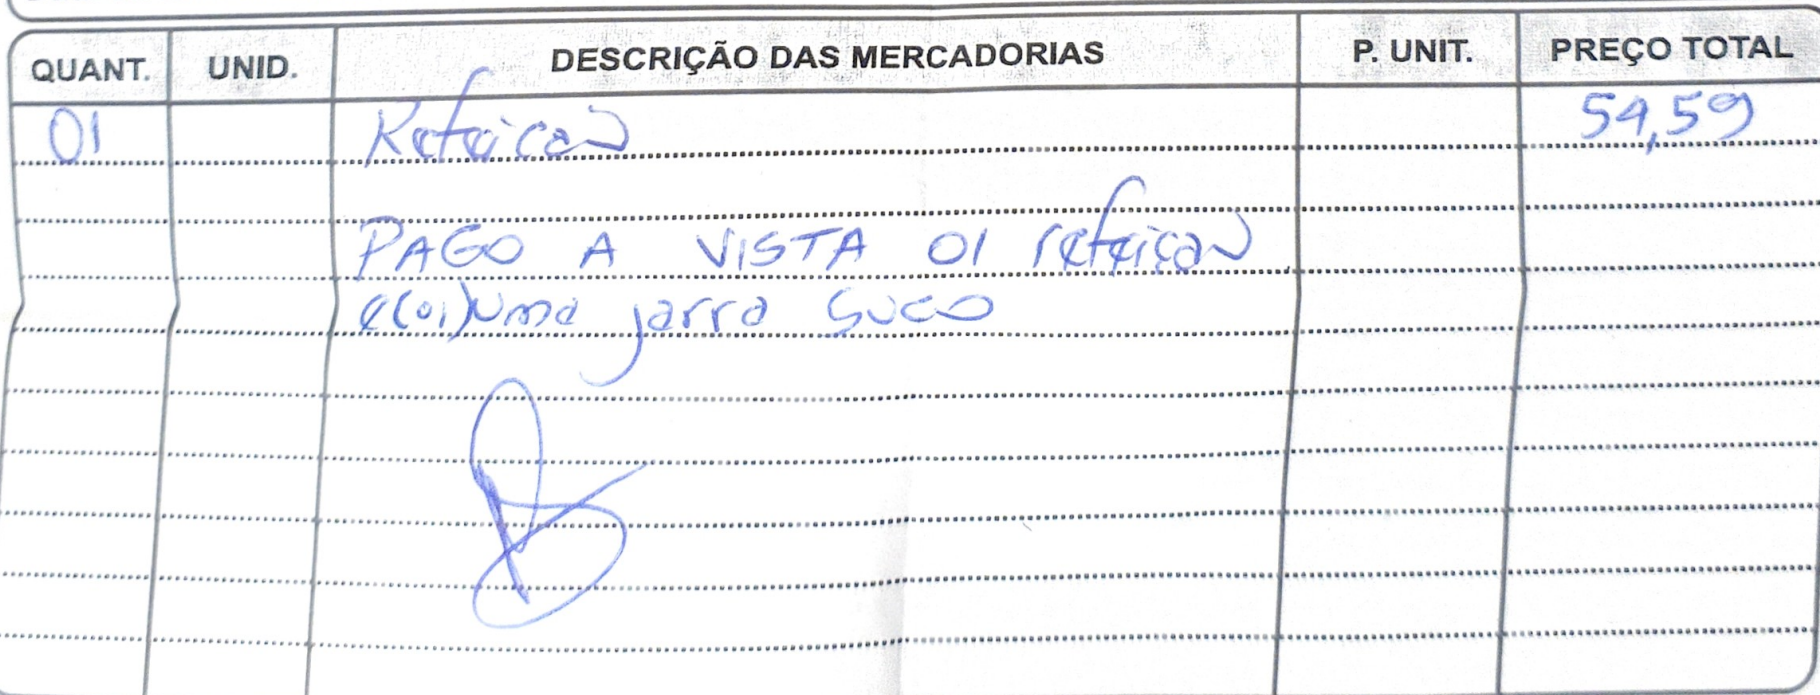 QUANT. UNID. DESCRIÇÃO DAS MERCADORIAS P. UNIT. PREÇO TOTAL
01 Refeicao 54,59
PAGO A VISTA 01 refeiçao
e(01)uma jarra suco